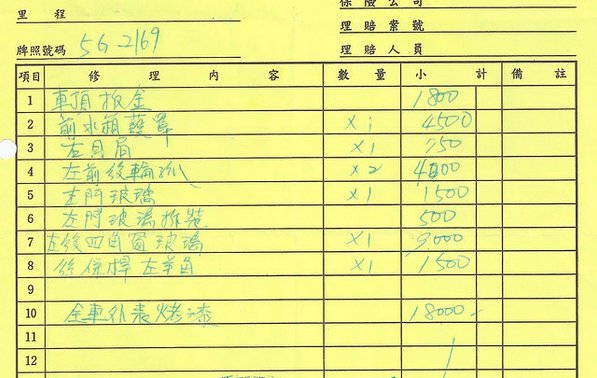 里程
保險公司
理賠案號
牌照號碼 5G-2169
理賠人員
項目 修理內容 數量 小計 備註
1 車頂板金 1800
2 前水箱護罩 X1 4500
3 左目眉 X1 750
4 左前後輪弧 X2 4000
5 左門玻璃 X1 1500
6 左門玻璃拆裝 500
7 左後四角窗玻璃 X1 3000
8 後保桿左羊角 X1 1500
9
10 全車外表烤漆 18000
11
12